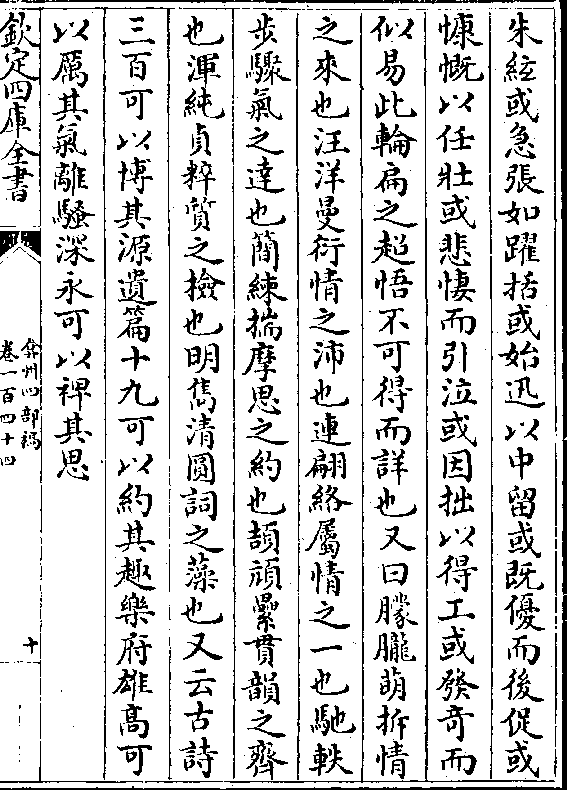 朱絃或急張如躍括或始迅以中留或既優而後促或
慷慨以任壯或悲悽而引泣或因拙以得工或發奇而
似易此輪扁之超悟不可得而詳也又曰朦朧萌拆情
之來也汪洋曼衍情之沛也連翩絡屬情之一也馳軼
步驟氣之達也簡練揣摩思之約也頡頏纍貫韻之齊
也渾純貞粹質之檢也明雋清圓詞之藻也又云古詩
三百可以博其源遺篇十九可以約其趣樂府雄高可
以厲其氣離騷深永可以裨其思
欽定四庫全書
弇州四部稿
卷一百四十四
十